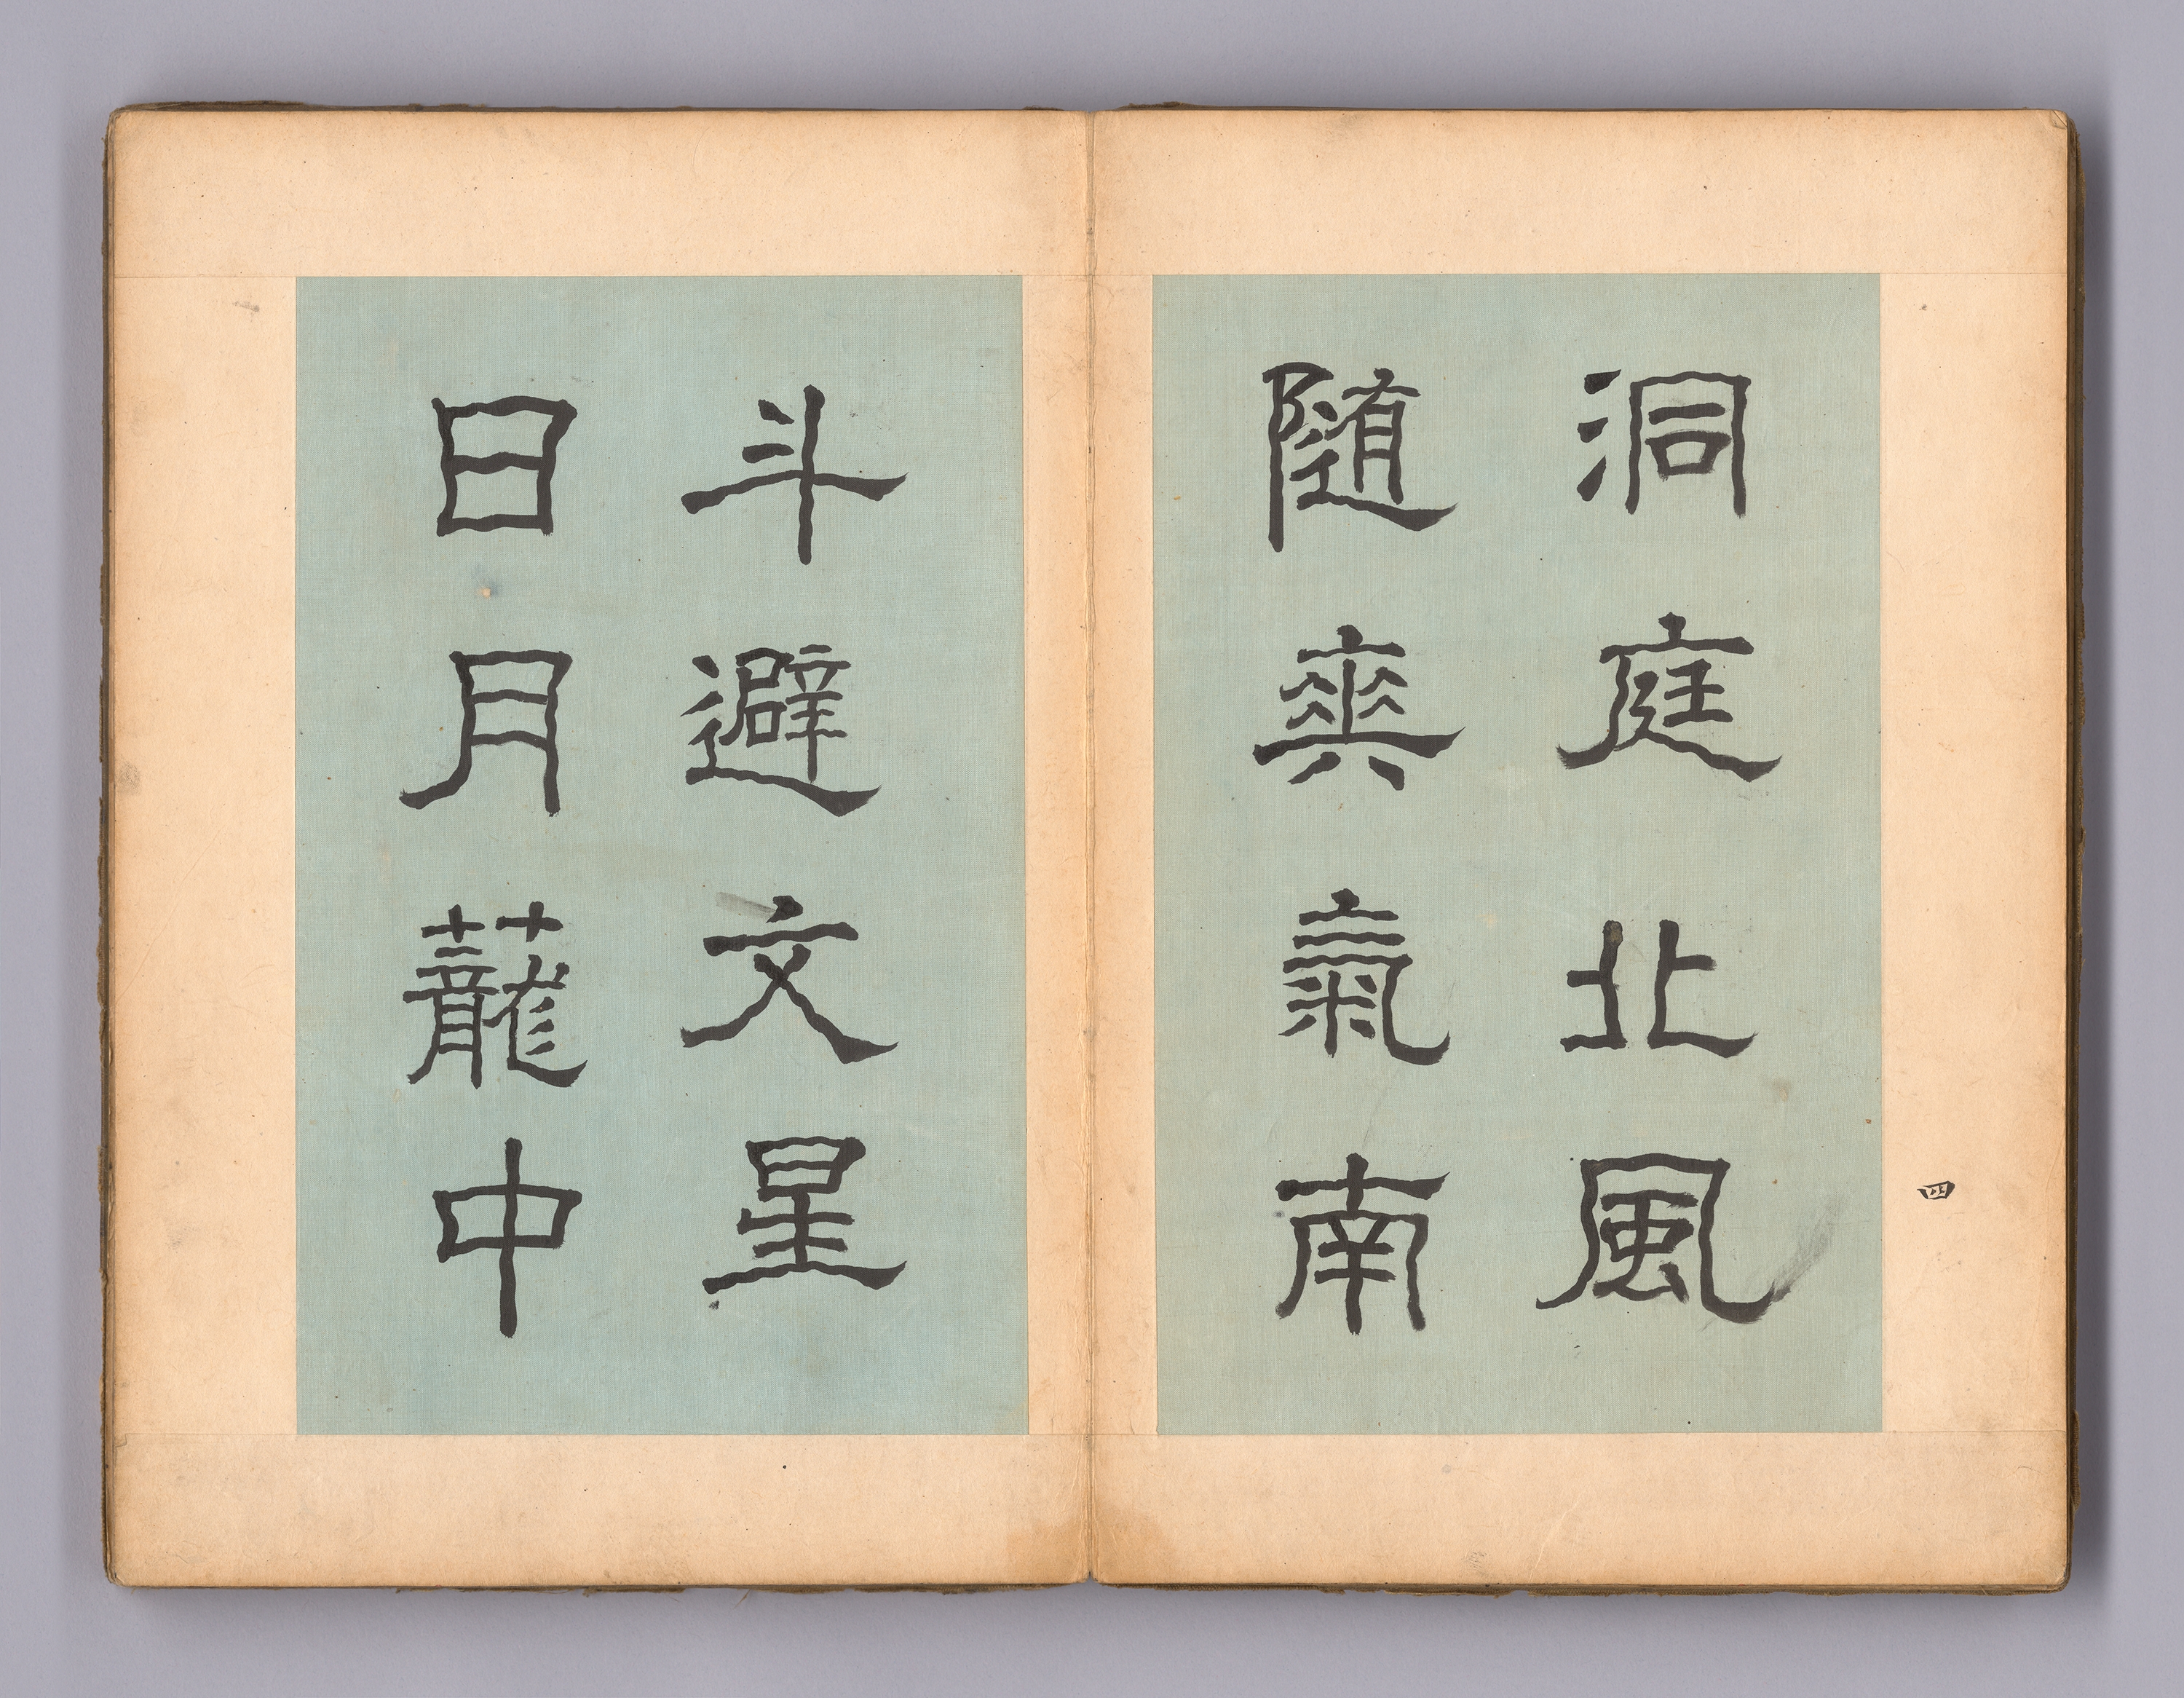 洞庭北風
随爽氣南
斗避文星
日月蘢中
四